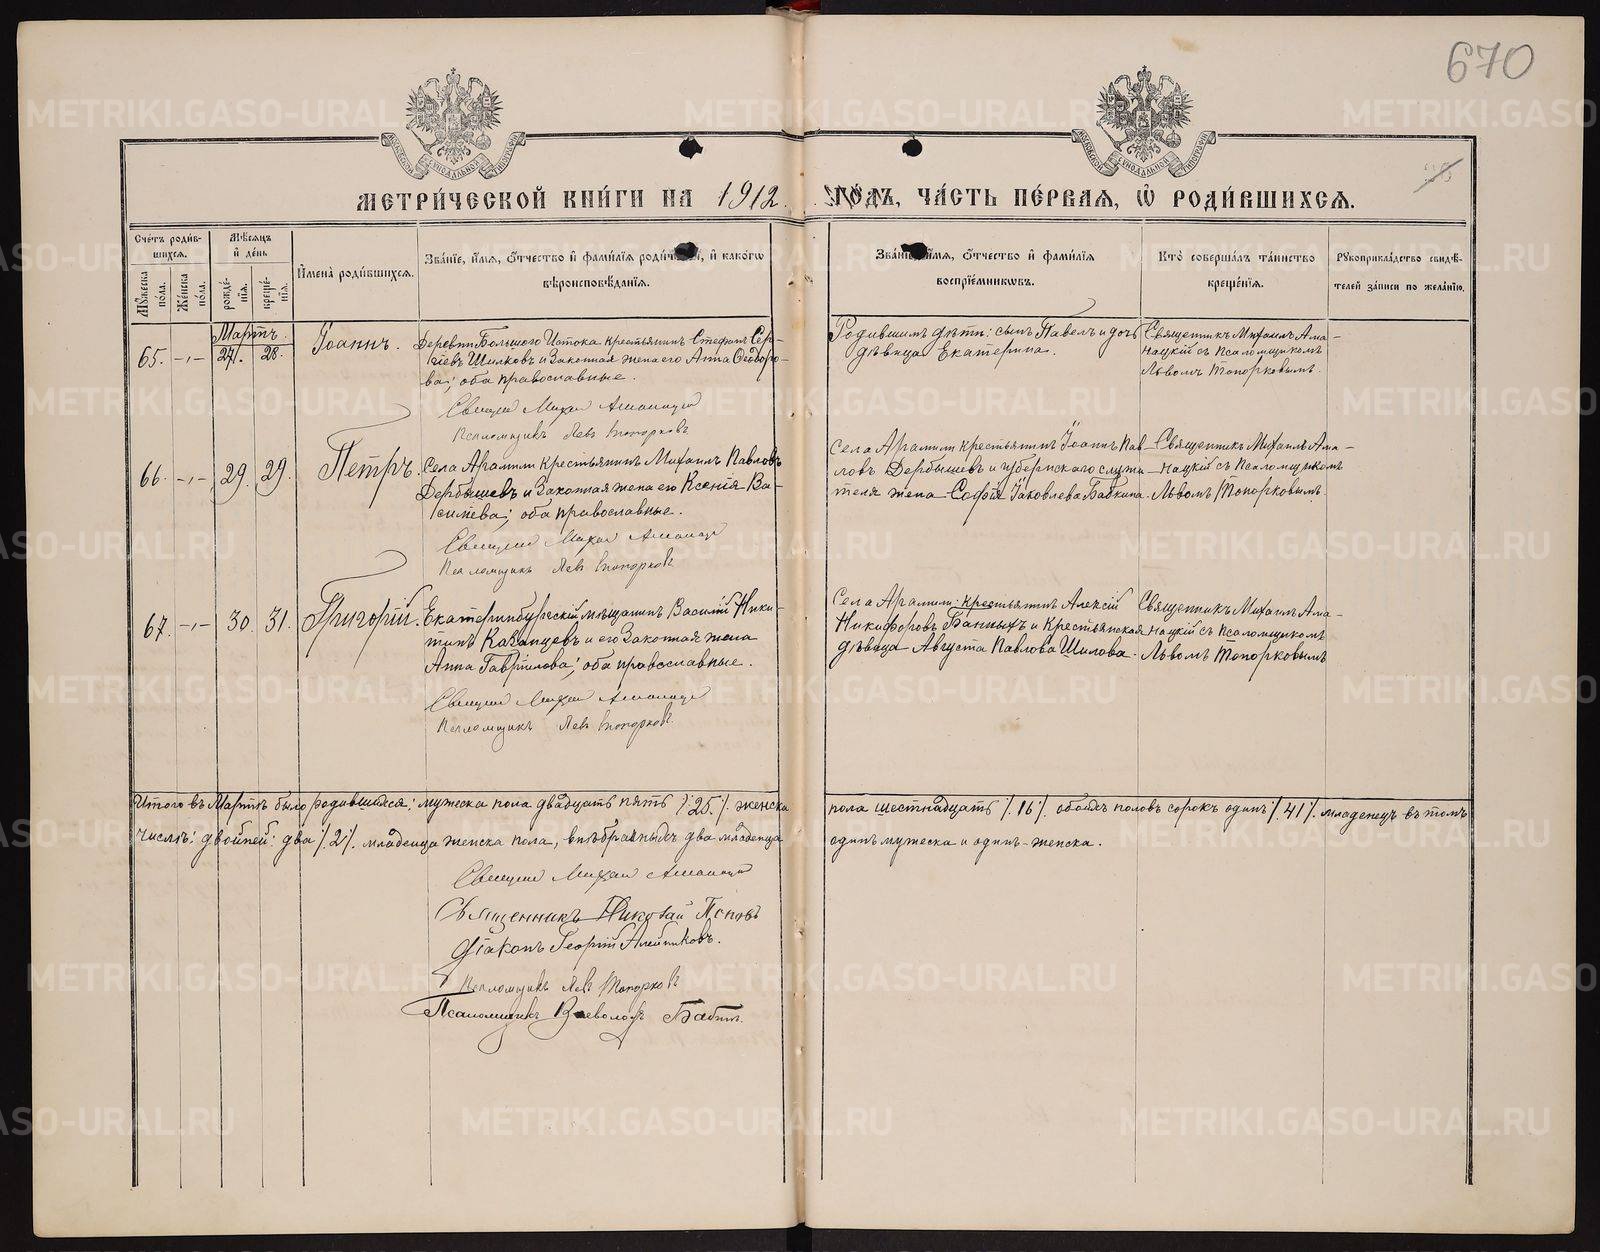 670
МЕТРИЧЕСКОЙ КНИГИ НА 1912 ГОДЪ, ЧАСТЬ ПЕРВАЯ, Ѡ РОДИВШИХСЯ.
Счетъ родившихся.
Мужеска пола.
Женска пола.
Мѣсяцъ и день
рожденія.
крещенія.
Имена родившихся.
Званіе, имя, отчество и фамилія родителей, и какогѡ вѣроисповѣданія.
Званіе, имя, отчество и фамилія воспріемниковъ.
Кто совершалъ таинство крещенія.
Рукоприкладство свидѣтелей записи по желанію.
Мартъ.
65. 27. 28. Іоаннъ.
Деревни Большого Истока крестьянинъ Стефанъ Сер-
гіевъ Шилковъ и законная жена его Анна Ѳеодоро-
ва; оба православные.
Родившимъ дѣти: сынъ Павелъ и дочь
дѣвица Екатерина.
Священникъ Михаилъ Ама-
нацкій съ псаломщикомъ
Львомъ Топорковымъ.
Священ Михаил Аманацкій
Псаломщикъ Левъ Топорковъ
66. 29. 29. Петръ.
Села Арамили крестьянинъ Михаилъ Павловъ
Дербышевъ и законная жена его Ксенія Ва-
силіева; оба православные.
Села Арамили крестьянинъ Іоаннъ Пав-
ловъ Дербышевъ и губернскаго служи-
теля жена София Іаковлева Бабкина.
Священникъ Михаилъ Ама-
нацкій съ псаломщикомъ
Львомъ Топорковымъ.
Священ Михаил Аманацкій
Псаломщикъ Левъ Топорковъ
67. 30. 31. Григорій.
Екатеринбургскій мѣщанинъ Василій Ники-
тинъ Казанцевъ и его законная жена
Анна Гавріилова; оба православные.
Села Арамили крестьянинъ Алексій
Никифоровъ Банныхъ и крестьянская
дѣвица Августа Павлова Шилова.
Священникъ Михаилъ Ама-
нацкій съ псаломщикомъ
Львомъ Топорковымъ
Священ Михаил Аманацкій
Псаломщикъ Левъ Топорковъ
Итого въ Мартѣ было родившихся: мужеска пола двадцать пять /25./ женска пола шестнадцать /16/ обоихъ половъ сорокъ одинъ /41/ младенецъ въ томъ
числѣ: двойней: два /2/ младенца женска пола, внѣбрачныхъ два младенца одинъ мужеска и одинъ женска.
Священ Михаил Аманацкій
Священникъ Николай Поповъ
Діаконъ Георгій Алейниковъ.
Псаломщикъ Левъ Топорковъ
Псаломщикъ Всеволодъ
METRIKI.GASO-URAL.RU